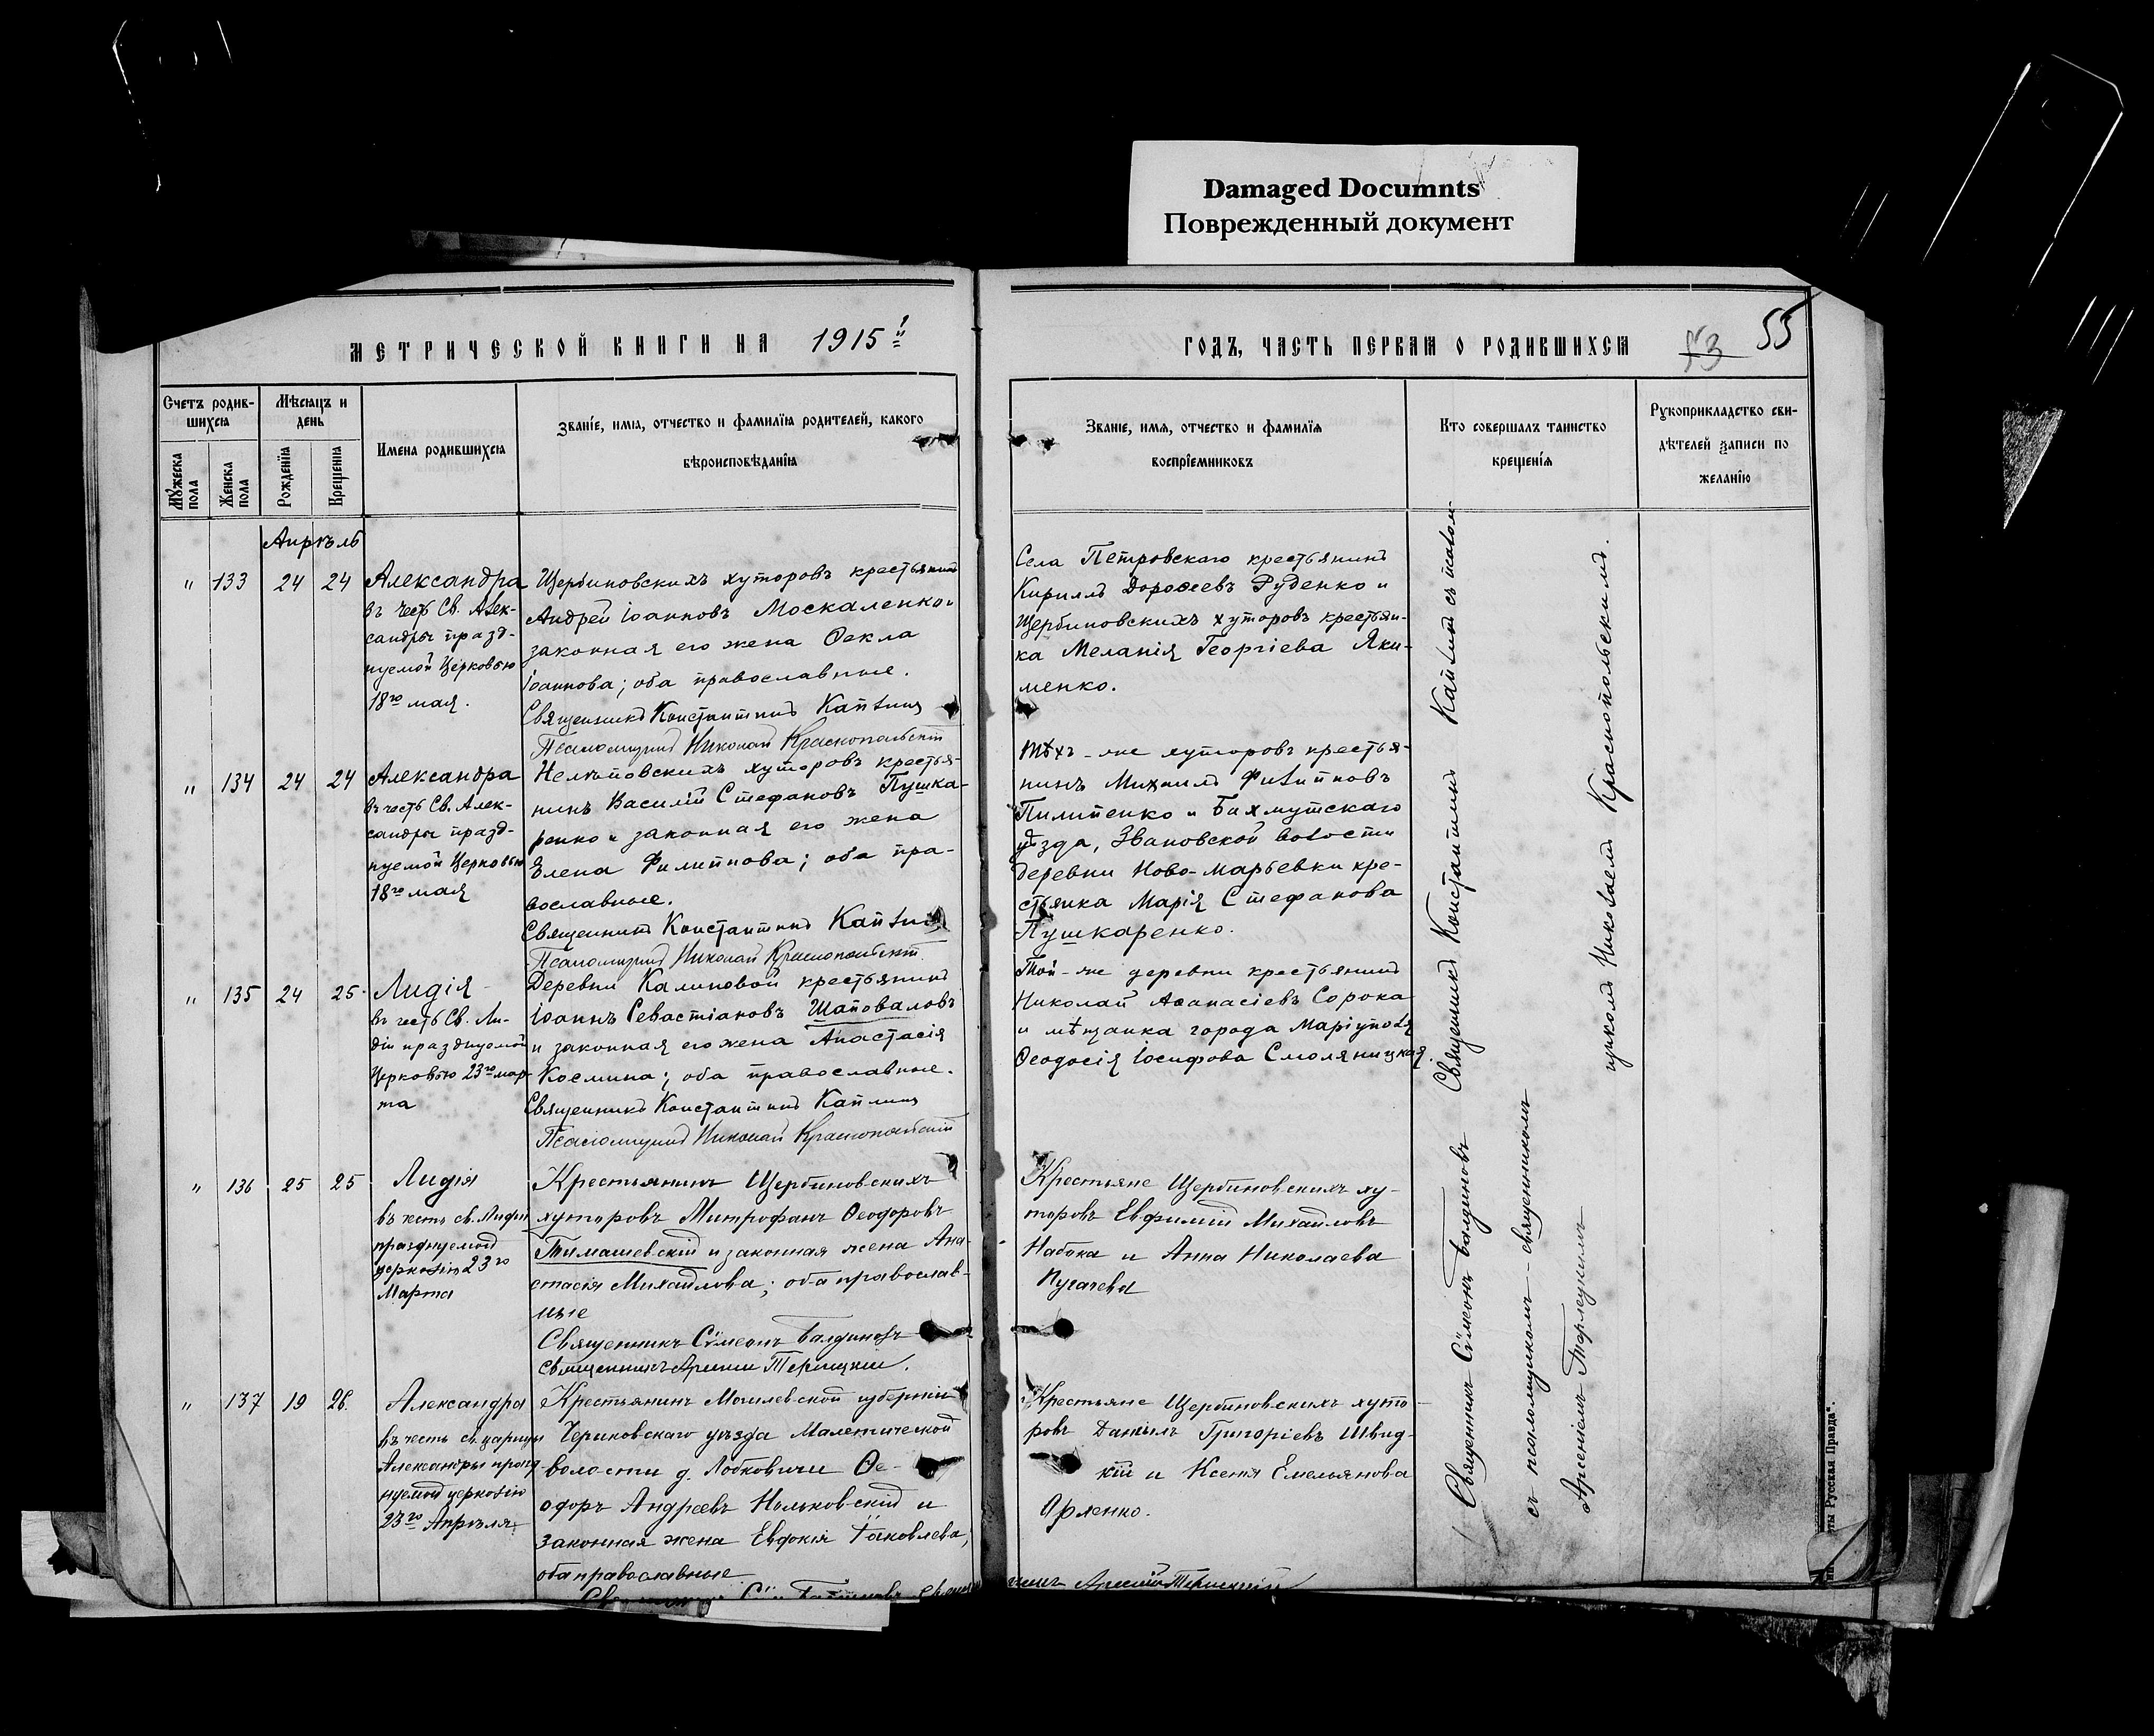 Damaged Documnts
Поврежденный документ
МЕТРИЧЕСКОЙ КНИГИ НА 1915й
ГОДЪ, ЧАСТЬ ПЕРВАЯ О РОДИВШИХСЯ
53
55
Счетъ родив-
шихся
Мѣсяцъ и
день
Мужеска
пола
Женска
пола
Рожденія
Крещенія
Имена родившихся
Званіе, имя, отчество и фамилія родителей, какого
вѣроисповѣданія
Званіе, имя, отчество и фамилія
воспріемниковъ
Кто совершалъ таинство
крещенія
Рукоприкладство сви-
дѣтелей записи по
желанію
Апрѣль
" 133 24 24
Александра
въ честь Св. Алек-
сандры празд-
нуемой Церковью
18го мая.
Щербиновскихъ хуторовъ крестьянинъ
Андрей Іоанновъ Москаленко и
законная его жена Ѳекла
Іоаннова; оба православные.
Священникъ Константинъ Каплинъ
Псаломщикъ Николай Краснопольскій
Села Петровскаго крестьянинъ
Кириллъ Дороѳеевъ Руденко и
Щербиновскихъ хуторовъ крестьян-
ка Меланія Георгіева Яки-
менко.
" 134 24 24
Александра
въ честь Св. Алек-
сандры празд-
нуемой Церковью
18го мая
Нелѣповскихъ хуторовъ крестья-
нинъ Василій Стефановъ Пушка-
ренко и законная его жена
Елена Филиппова; оба пра-
вославные.
Священникъ Константинъ Каплинъ
Псаломщикъ Николай Краснопольскій
Тѣхъ-же хуторовъ крестья-
нинъ Михаилъ Филипповъ
Пилипенко и Бахмутскаго
уѣзда, Звановской волости
деревни Ново-Марьевки кре-
стьянка Марія Стефанова
Пушкаренко.
" 135 24 25
Лидія
въ честь Св. Ли-
діи празднуемой
Церковью 23го мар-
та
Деревни Калиновой крестьянинъ
Іоаннъ Севастіановъ Шаповаловъ
и законная его жена Анастасія
Космина; оба православные.
Священникъ Константинъ Каплинъ
Псаломщикъ Николай Краснопольскій
Той-же деревни крестьянинъ
Николай Аѳанасіевъ Сорока
и мѣщанка города Маріуполя
Ѳеодосія Іосифова Смоляницкая.
" 136 25 25
Лидія
въ честь св. Лидіи
празднуемой
церковію 23го
Марта
Крестьянинъ Щербиновскихъ
хуторовъ Митрофанъ Ѳеодоровъ
Тимашевскій и законная жена Ана-
стасія Михайлова; оба православ-
ные
Священникъ Сѵмеонъ Балдиновъ
священникъ
Крестьяне Щербиновскихъ ху-
торовъ Евфимій Михайловъ
Набока и Анна Николаева
Пугачева
" 137 19 26.
Александра
въ честь св. царицы
Александры празд-
нуемой церковію
23го Апрѣля.
Крестьянинъ Могилевской губерніи
Чериковскаго уѣзда Малетической
волости д. Лобковичи Ѳе-
одоръ Андреевъ Нольковскій и
законная жена Евдокія Іаковлева,
оба православные
Крестьяне Щербиновскихъ хуто-
ровъ Даніилъ Григоріевъ Швид-
кій и Ксенія Емельянова
Священникъ Константинъ Каплинъ съ псалом-
щикомъ Николаемъ Краснопольскимъ.
Священникъ Сѵмеонъ Балдиновъ
съ псаломщикомъ-священникомъ
Арсеніемъ
ты „Русская Правда“.